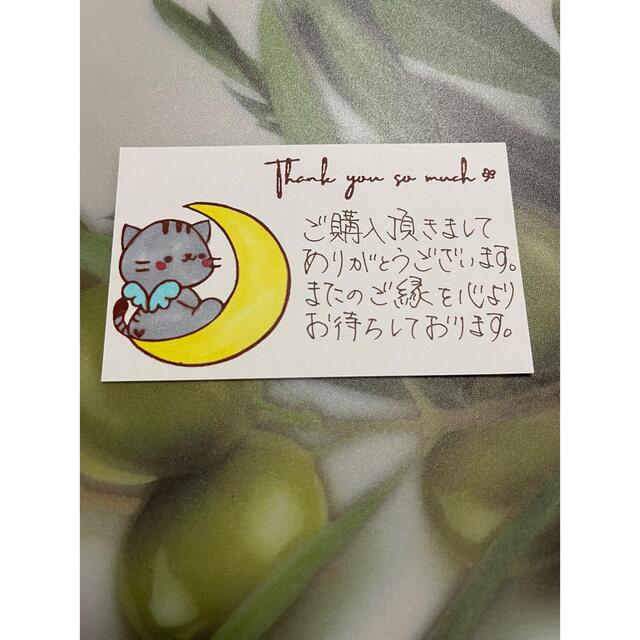 Thank you so much
ご購入頂きまして
ありがとうございます。
またのご縁を心より
お待ちしております。